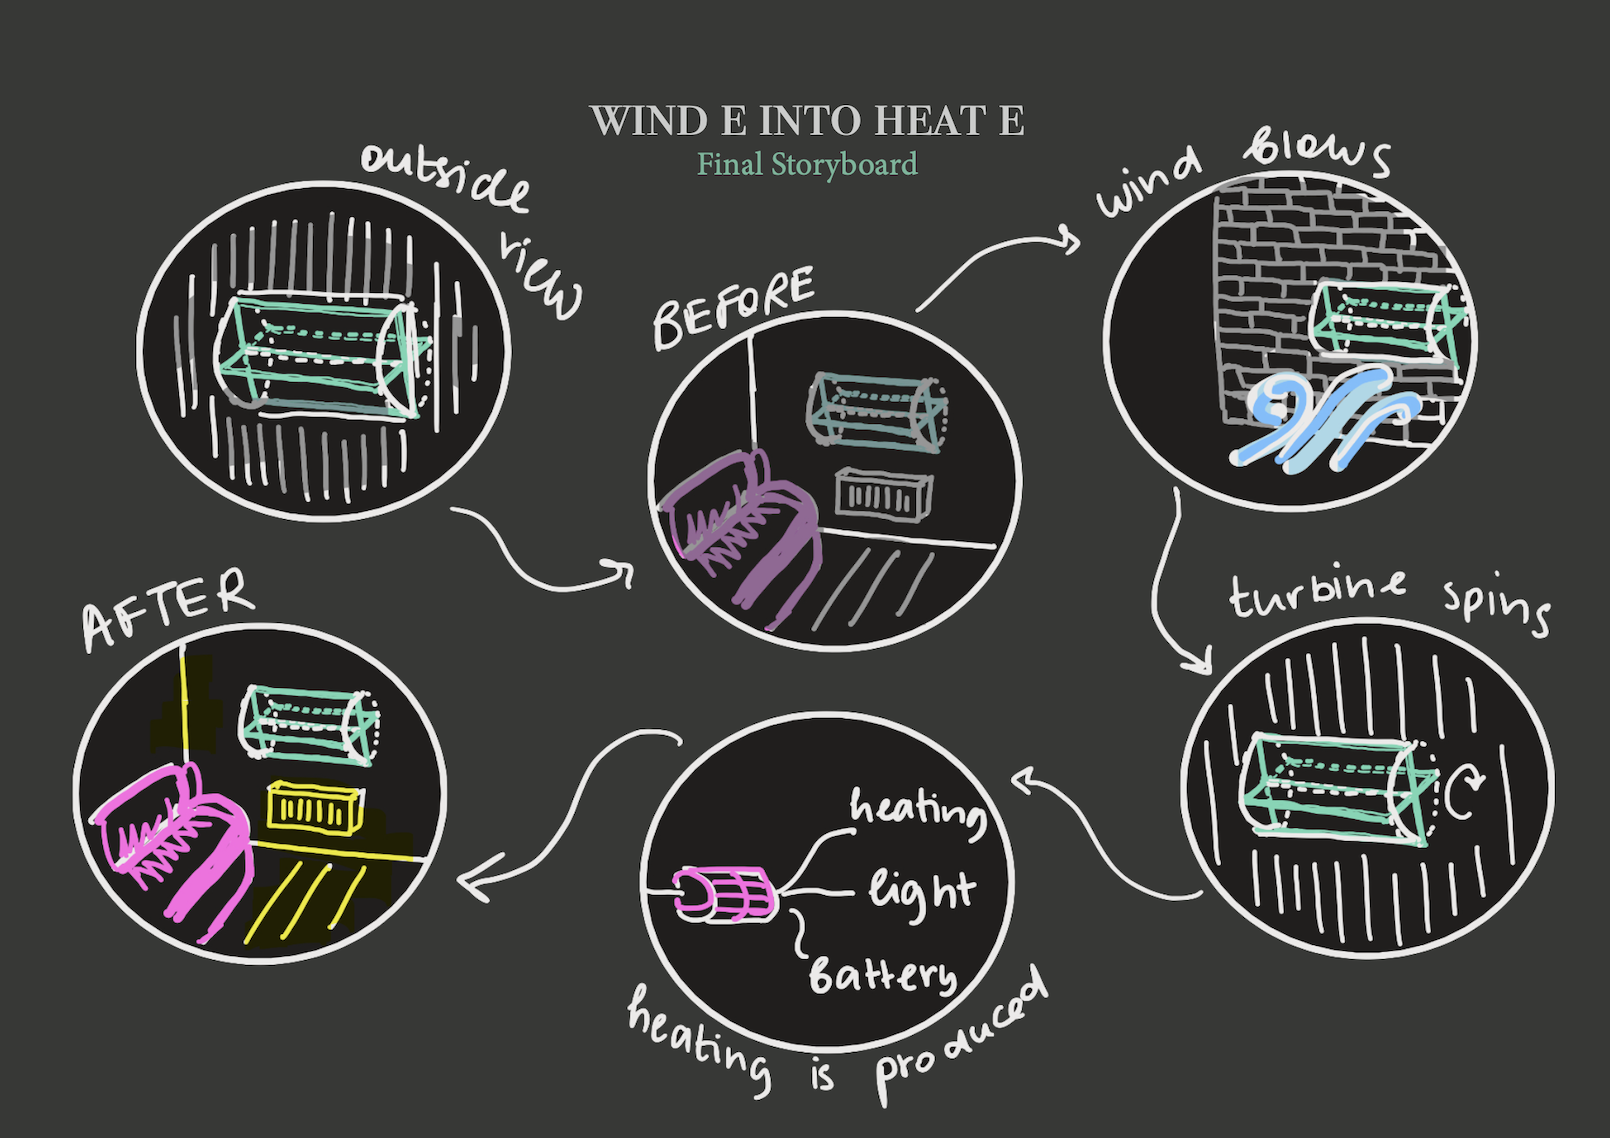 WIND E INTO HEAT E
Final Storyboard
outside view
BEFORE
wind blows
turbine spins
heating
light
battery
heating is produced
AFTER